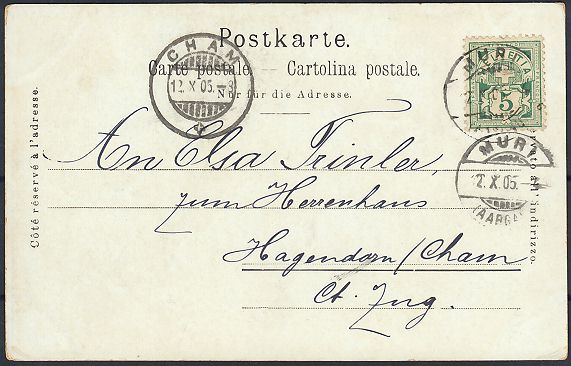 Postkarte.
Carte postale. — Cartolina postale.
Nur für die Adresse.
Côté réservé à l'adresse.
CHAM
12.X.05.—8
MURI
5
MURI
12.X.05.
(AARGAU)
An Elsa Trinler,
zum Herrenhaus
Hagendorn/Cham
Ct. Zug.